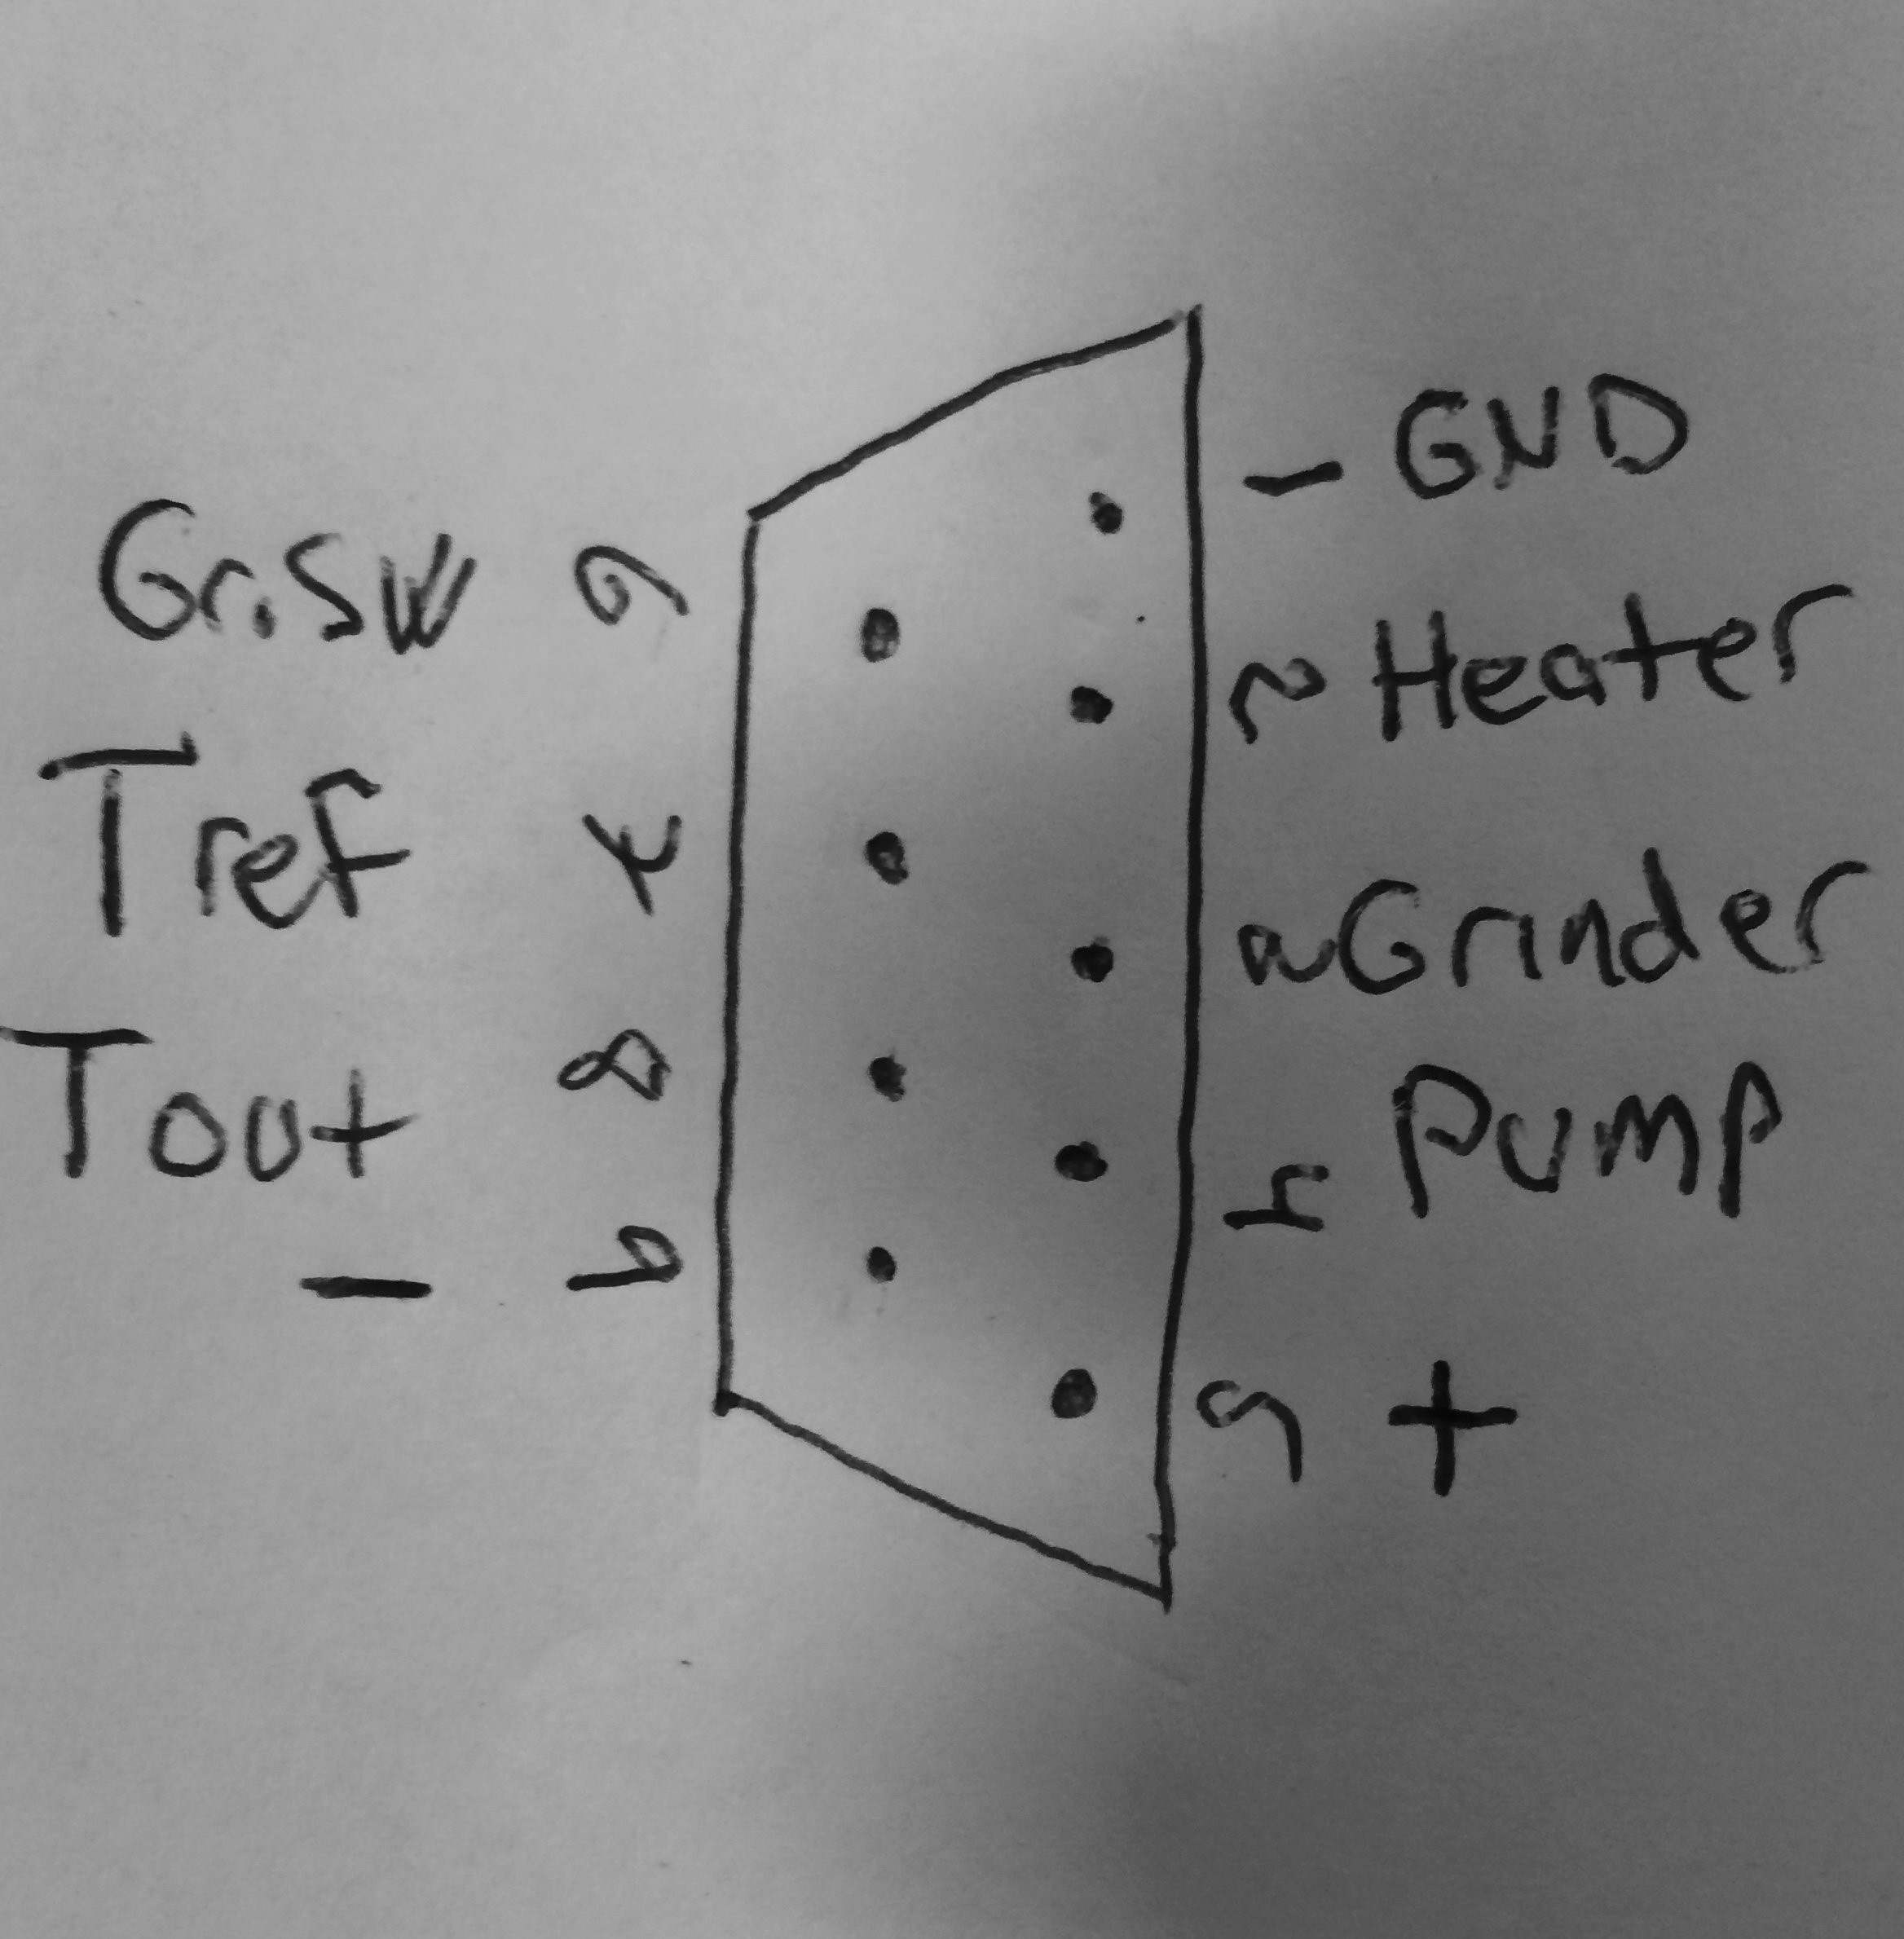 1 GND
Gr.SW 6
2 Heater
Tref 7
3 Grinder
Tout 8
4 Pump
- 9
5 +